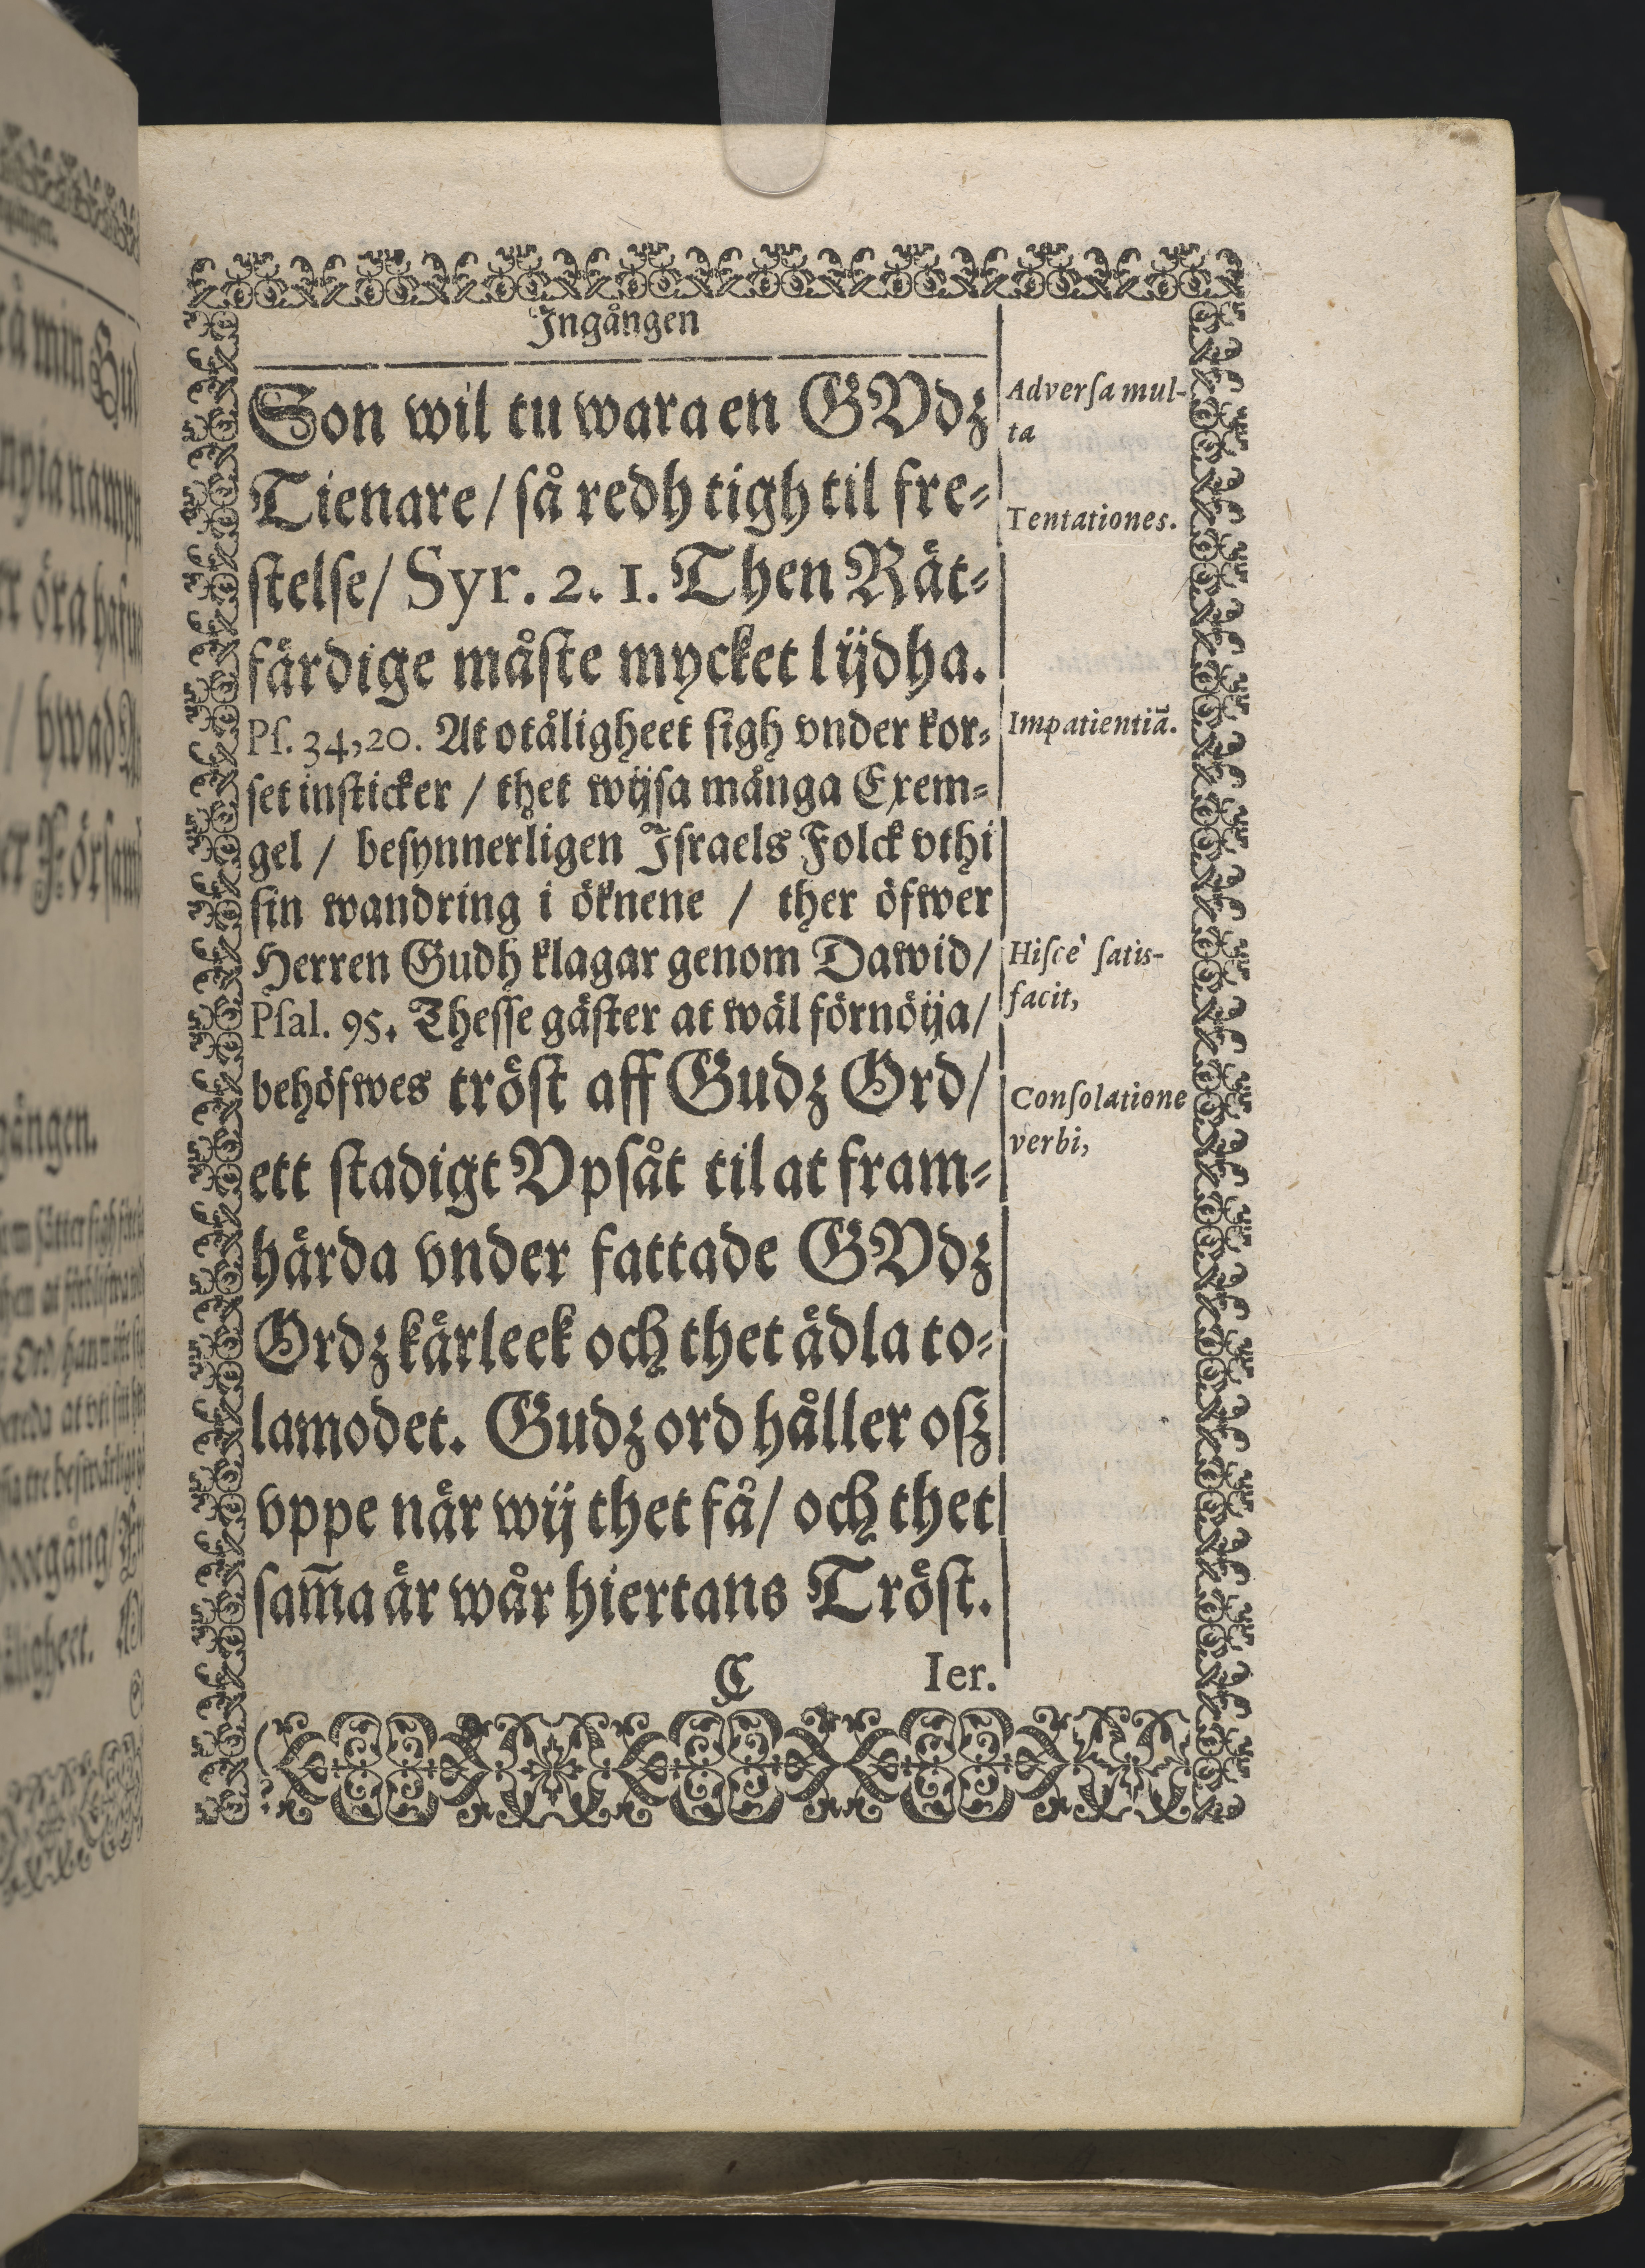 Ingången
Son wil tu wara en GVdz
Tienare / så redh tigh til fre-
stelse / Syr. 2. 1. Then Rät-
färdige måste mycket lijdha.
Ps. 34,20. At otåligheet sigh vnder kor-
set insticker / thet wijsa många Exem-
gel / besynnerligen Israels Folck vthi
sin wandring i öknene / ther öfwer
Herren Gudh klagar genom Dawid /
Psal. 95. Thesse gäster at wäl förnöija /
behöfwes tröst aff Gudz Ord /
ett stadigt Vpsåt til at fram-
härda vnder fattade GVdz
Ordz kärleek och thet ädla to-
lamodet. Gudz ord håller oß
vppe när wij thet få / och thet
sam̄a är wår hiertans Tröst.
C Ier.
Adversa mul-
ta
Tentationes.
Impatientiā.
Hisce satis-
facit,
Consolatione
verbi,